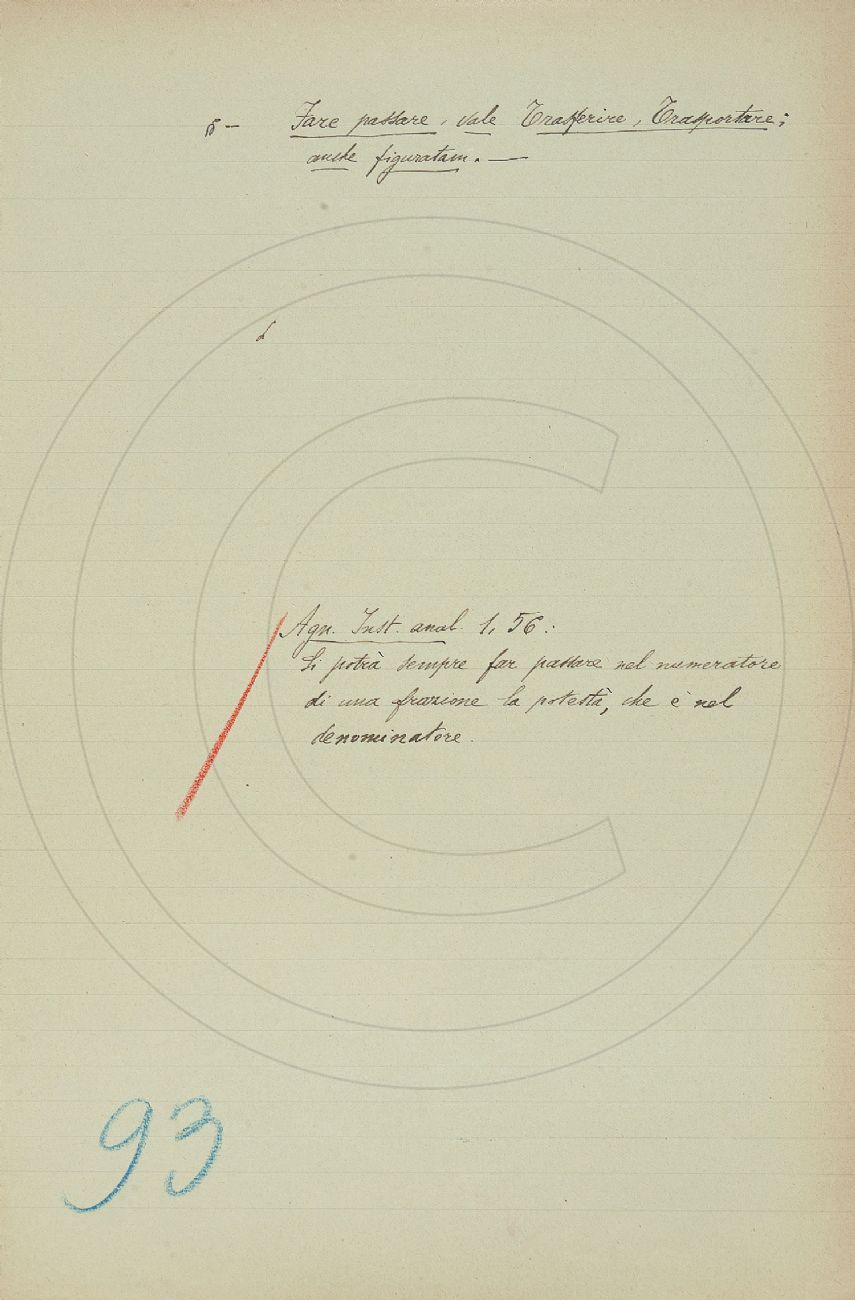 § — Fare passare, vale Trasferire, Trasportare;
anche figuratam. —
Agn. Inst. anal. 1, 56:
Si potrà sempre far passare nel numeratore
di una frazione la potestà, che è nel
denominatore.
93